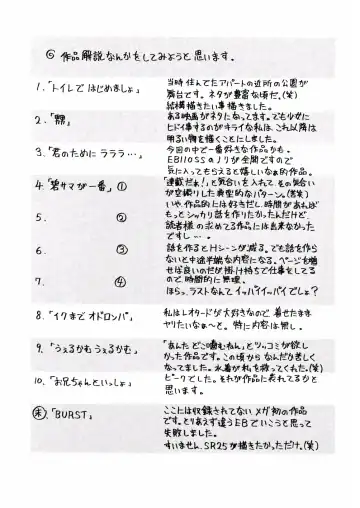 ◎ 作品解説なんかをしてみようと思います。
1.「トイレで はじめましょ」
当時住んでたアパートの近所の公園が
舞台です。ネタが豊富な頃だ。(笑)
結構描きたい事描きました。
2.
ある映画がネタになってます。でも少女に
ヒドイ事するのがキライな私は、これ以降は
明るい物を描くことにしました。
3.「君のために ラララ…」
今回の中で一番好きな作品かも。
EB110SSのノリが全開ですので
気に入ってもらえると嬉しいなぁ的作品。
4.「碧サマが一番」①
「連載だぁ!」と気合いを入れて その気合い
が空振りした典型的なパターン。(苦笑)
5. ②
いや、作品的には好きだし、時間があれば
もっとシッカリ話を作りたかったんだけど、
読者様の求めてる作品には出来なかった
ですし…。
6. ③
話を作るとHシーンが減る。でも話を作ら
ないと中途半端な内容になる。ページを増
7. ④
せば良いのだが掛け持ちで仕事をしてる
ので時間的に無理。
ほらっ、ラストなんてイッパイイッパイでしょ?
8.「イクまで オドロンパ」
私はレオタードが大好きなので 着せたまま
ヤりたいなぁ〜と。特に内容は無し。
9.「うぇるかむうぇるかむ」
「あんた どこ噛むねん」とツッコミが欲し
かった作品です。この頃から なんだか苦しく
なってました。水着が私を救ってくれた。(笑)
10.「お兄ちゃんといっしょ」
ピークでした。それが作品に表れてるかと
思います。
「BURST」
ここには収録されてない メガ初の作品
です。とりあえず違うEBでいこうと思って
失敗しました。
すいません、SR25が描きたかっただけ。(笑)